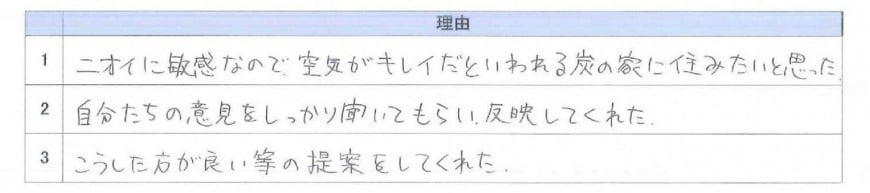 理由
1 ニオイに敏感なので、空気がキレイだといわれる炭の家に住みたいと思った。
2 自分たちの意見をしっかり聞いてもらい、反映してくれた。
3 こうした方が良い等の提案をしてくれた。